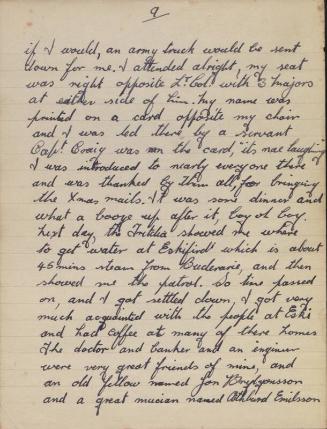 9
if I would, an army truck would be sent
down for me. I attended alright, my seat
was right opposite Lt. Col. with 3 majors
at either side of him. My name was
printed on a card opposite my chair
and I was led there by a servant
Capt. Craig was on the card, it's not laughing
I was introduced to nearly everyone there
and was thanked by them all, for bringing
the Xmas mails. It was some dinner and
what a booze up after it, boy oh boy.
Next day, the showed me where
to get water at Eskifird which is about
45 mins steam from Buderarie, and then
showed me the patrol. So time passed
on, and I got settled down, I got very
much acquainted with the people at Eski
and had coffee at many of there homes
The doctor and banker and an engineer
were very great friends of mine, and
an old fellow named Jon
and a great musician named Emilsson